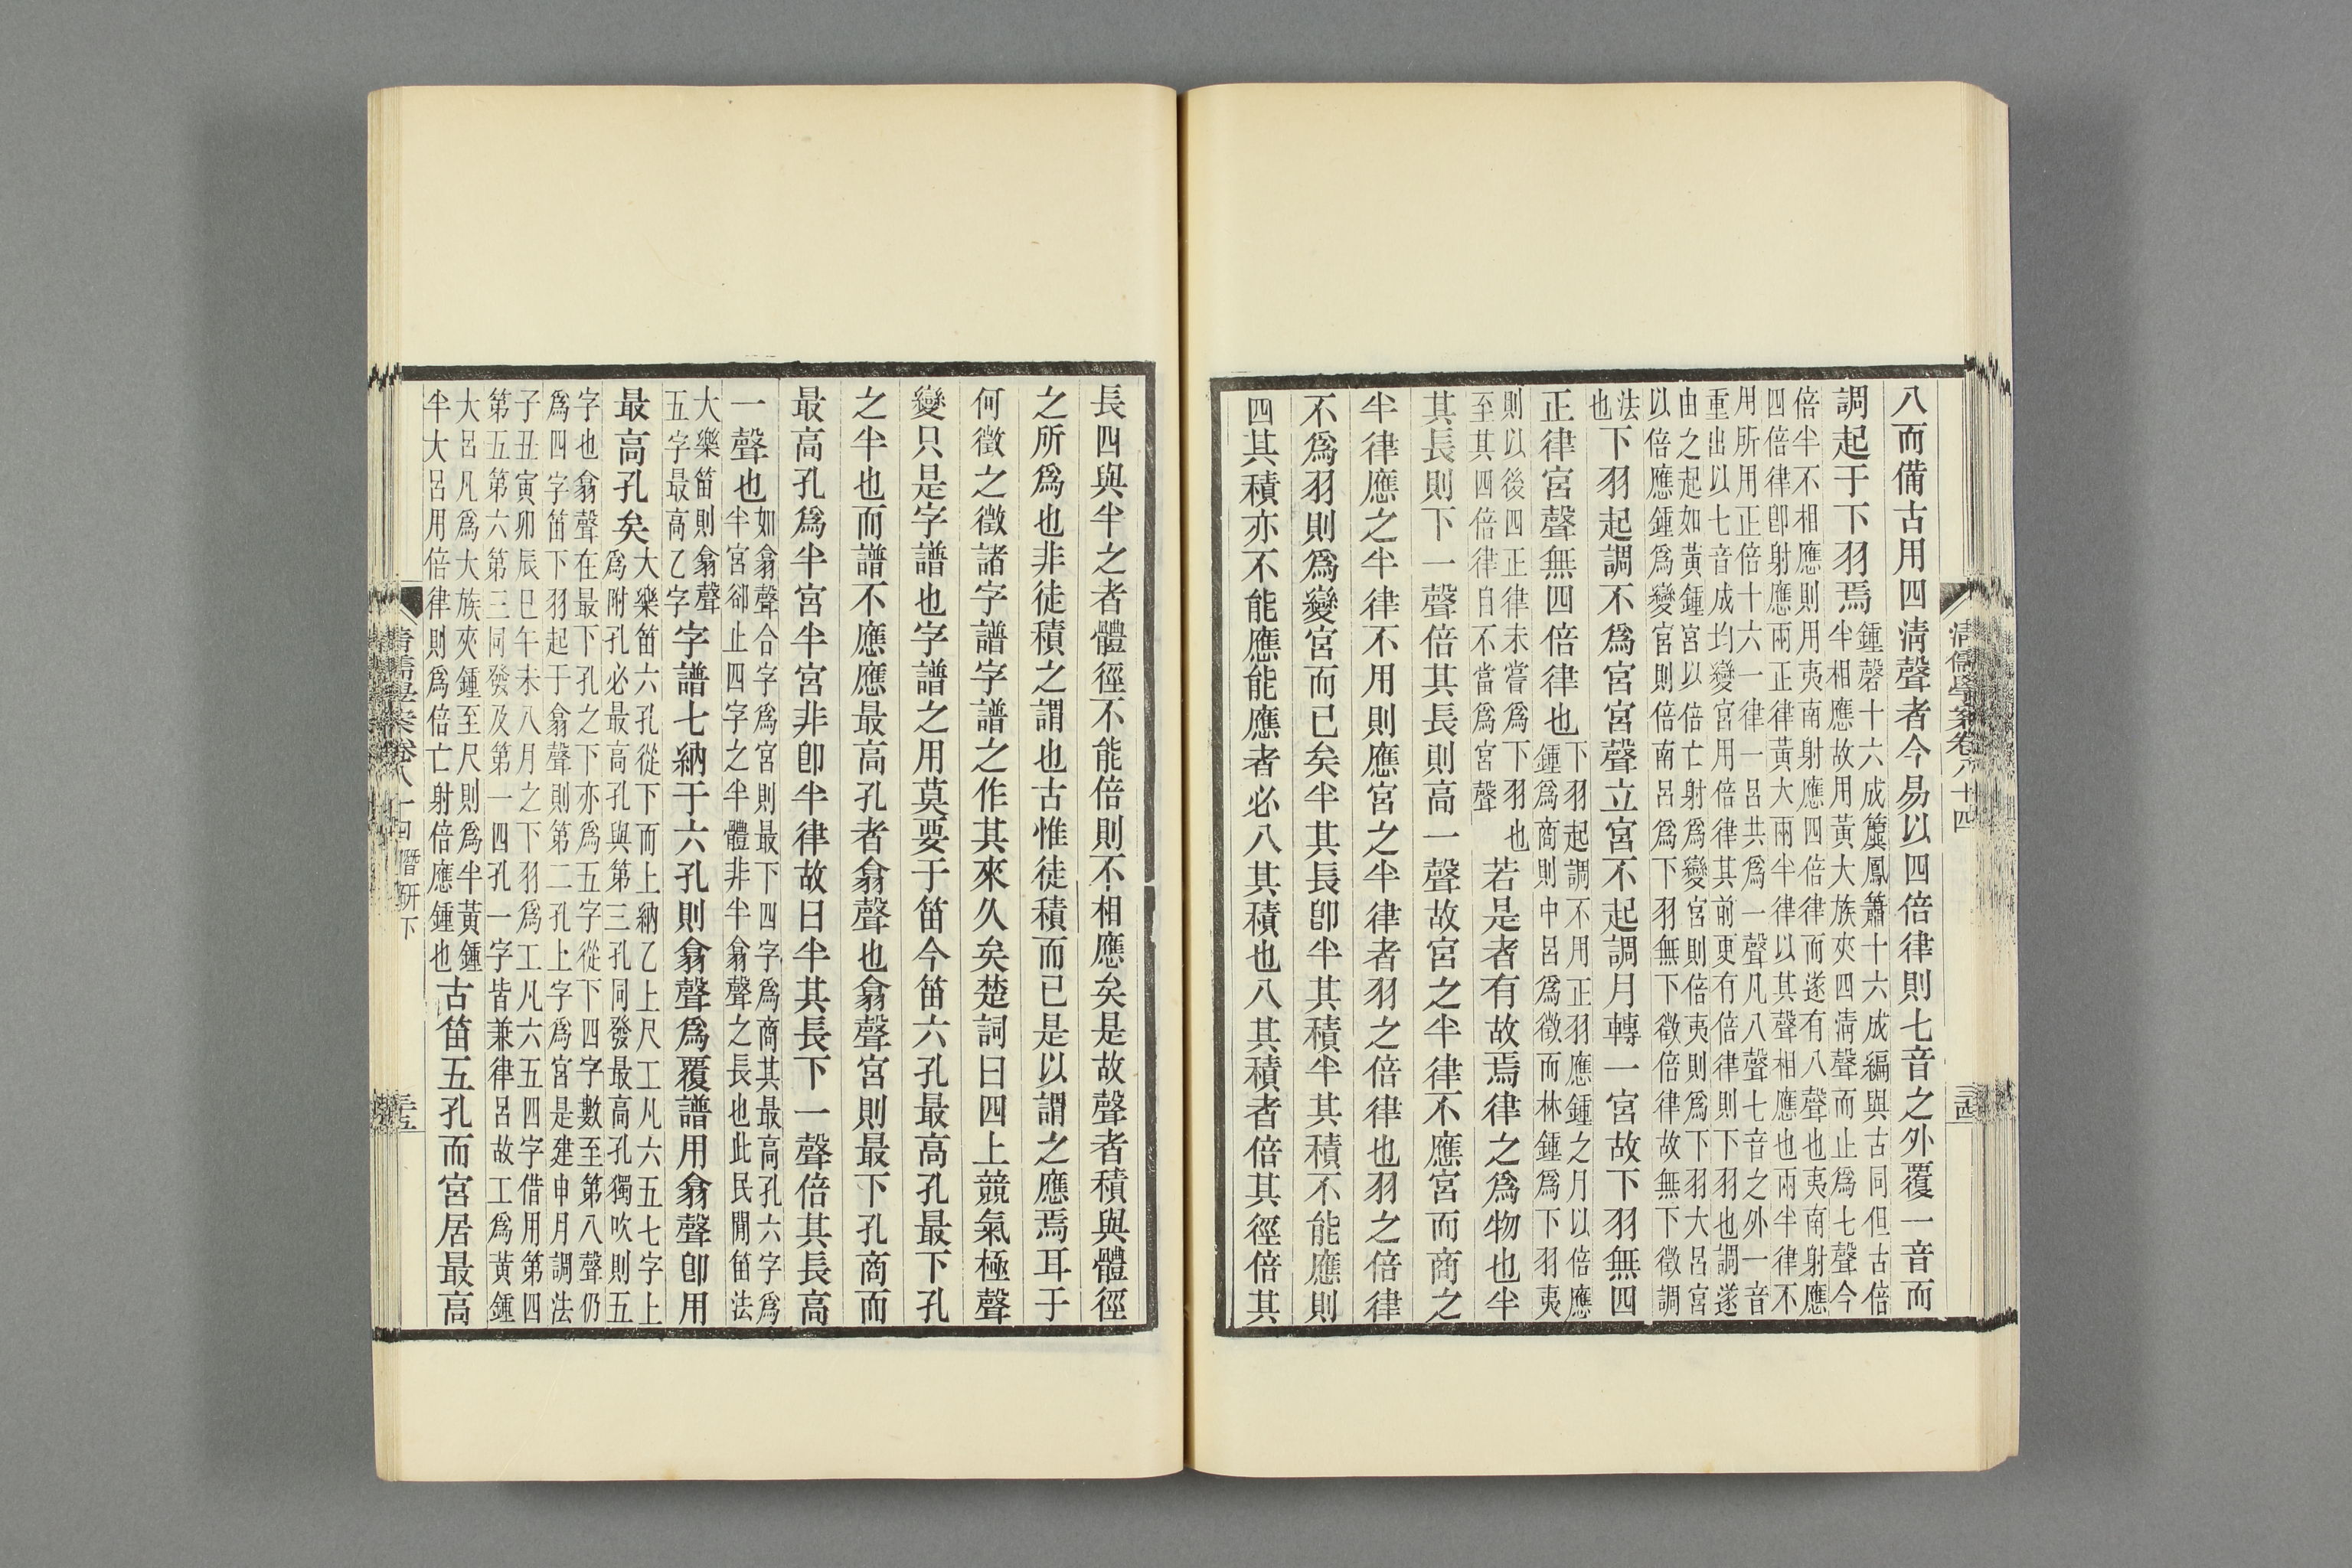 清儒學案卷八十四
八而備古用四淸聲者今易以四倍律則七音之外覆一音而
調起于下羽焉
鍾磬十六成簴鳳簫十六成編與古同但古倍
半相應故用黃大族夾四淸聲而止爲七聲今
倍半不相應則用夷南射應四倍律而遂有八聲也夷南射應
四倍律卽射應兩正律黃大兩半律以其聲相應也兩半律不
用所用正倍十六一律一呂共爲一聲凡八聲七音之外一音
重出以七音成均變宮用倍律其前更有倍律則下羽也調遂
由之起如黃鍾宮以倍亡射爲變宮則倍夷則爲下羽大呂宮
以倍應鍾爲變宮則倍南呂爲下羽無下徵倍律故無下徵調
法
也
下羽起調不爲宮宮聲立宮不起調月轉一宮故下羽無四
正律宮聲無四倍律也
下羽起調不用正羽應鍾之月以倍應
鍾爲商則中呂爲徵而林鍾爲下羽夷
則以後四正律未嘗爲下羽也
至其四倍律自不當爲宮聲
若是者有故焉律之爲物也半
其長則下一聲倍其長則高一聲故宮之半律不應宮而商之
半律應之半律不用則應宮之半律者羽之倍律也羽之倍律
不爲羽則爲變宮而已矣半其長卽半其積半其積不能應則
四其積亦不能應能應者必八其積也八其積者倍其徑倍其
長四與半之者體徑不能倍則不相應矣是故聲者積與體徑
之所爲也非徒積之謂也古惟徒積而已是以謂之應焉耳于
何徵之徵諸字譜字譜之作其來久矣楚詞曰四上競氣極聲
變只是字譜也字譜之用莫要于笛今笛六孔最高孔最下孔
之半也而譜不應應最高孔者翕聲也翕聲宮則最下孔商而
最高孔爲半宮半宮非卽半律故曰半其長下一聲倍其長高
一聲也
如翕聲合字爲宮則最下四字爲商其最高孔六字爲
半宮卻止四字之半體非半翕聲之長也此民閒笛法
大樂笛則翕聲
五字最高乙字
字譜七納于六孔則翕聲爲覆譜用翕聲卽用
最高孔矣
大樂笛六孔從下而上納乙上尺工凡六五七字上
爲附孔必最高孔與第三孔同發最高孔獨吹則五
字也翕聲在最下孔之下亦爲五字從下四字數至第八聲仍
爲四字笛下羽起于翕聲則第二孔上字爲宮是建申月調法
子丑寅卯辰巳午未八月之下羽爲工凡六五四字借用第四
第五第六第三同發及第一四孔一字皆兼律呂故工爲黃鍾
大呂凡爲大族夾鍾至尺則爲半黃鍾
半大呂用倍律則爲倍亡射倍應鍾也
古笛五孔而宮居最高